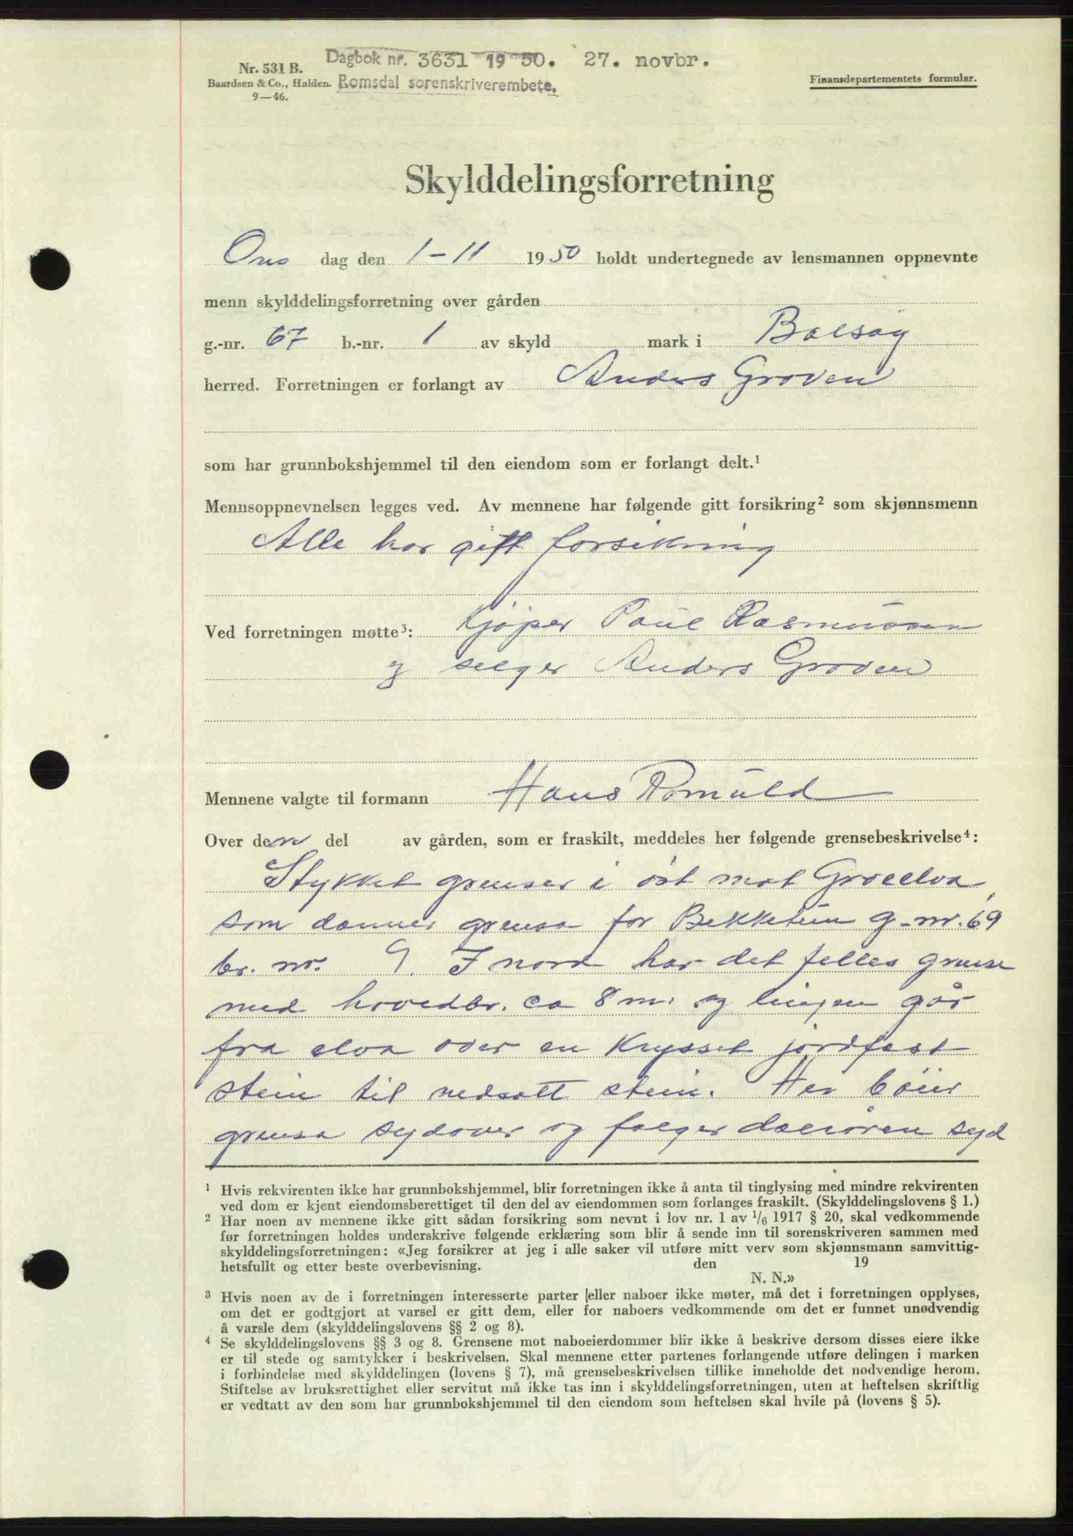 Nr. 531 B.
Baardsen & Co., Halden.
9—46.
Dagbok nr. 3631 19 50. 27. novbr.
Romsdal sorenskriverembete.
Finansdepartementets formular.
Skylddelingsforretning
Ons dag den 1-11 1950 holdt undertegnede av lensmannen oppnevnte
menn skylddelingsforretning over gården
g.-nr. 67 b.-nr. 1 av skyld mark i Bolsøy
herred. Forretningen er forlangt av Anders Groven
som har grunnbokshjemmel til den eiendom som er forlangt delt.¹
Mennsoppnevnelsen legges ved. Av mennene har følgende gitt forsikring² som skjønnsmenn
Alle har gitt forsikring
Ved forretningen møtte³: Kjøper Paul Rasmussen
og selger Anders Groven
Mennene valgte til formann Hans Romuld
Over den del av gården, som er fraskilt, meddeles her følgende grensebeskrivelse⁴:
Stykket grenser i øst mot Groelva,
som danner grensa for Bekketun g-nr. 69
br. nr. 9. I nord har det felles grense
med hovedbr. ca 8 m. og linjen går
fra elva over en krysset jordfast
stein til nedsatt stein. Her bøier
grensa sydover og følger syd
¹ Hvis rekvirenten ikke har grunnbokshjemmel, blir forretningen ikke å anta til tinglysing med mindre rekvirenten
ved dom er kjent eiendomsberettiget til den del av eiendommen som forlanges fraskilt. (Skylddelingslovens § 1.)
² Har noen av mennene ikke gitt sådan forsikring som nevnt i lov nr. 1 av 1/6 1917 § 20, skal vedkommende
før forretningen holdes underskrive følgende erklæring som blir å sende inn til sorenskriveren sammen med
skylddelingsforretningen: «Jeg forsikrer at jeg i alle saker vil utføre mitt verv som skjønnsmann samvittig-
hetsfullt og etter beste overbevisning. den 19
N. N.»
³ Hvis noen av de i forretningen interesserte parter eller naboer ikke møter, må det i forretningen opplyses,
om det er godtgjort at varsel er gitt dem, eller for naboers vedkommende om det er funnet unødvendig
å varsle dem (skylddelingslovens §§ 2 og 8).
⁴ Se skylddelingslovens §§ 3 og 8. Grensene mot naboeierdommer blir ikke å beskrive dersom disses eiere ikke
er til stede og samtykker i beskrivelsen. Skal mennene etter partenes forlangende utføre delingen i marken
i forbindelse med skylddelingen (lovens § 7), må grensebeskrivelsen tillike inneholde det nødvendige herom.
Stiftelse av bruksrettighet eller servitut må ikke tas inn i skylddelingsforretningen, uten at heftelsen skriftlig
er vedtatt av den som har grunnbokshjemmel til den eiendom som heftelsen skal hvile på (lovens § 5).